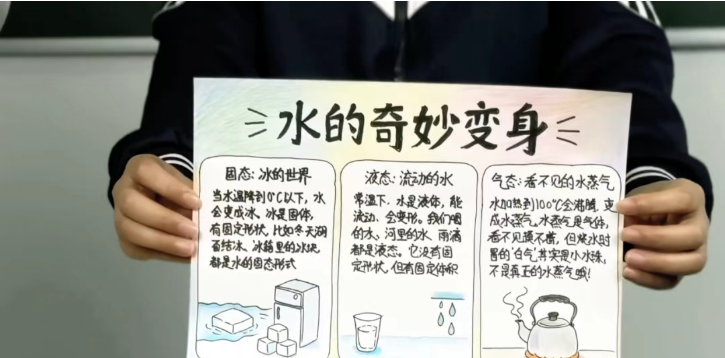 水的奇妙变身
固态:冰的世界
当水温降到0℃以下,水
会变成冰。冰是固体,
有固定形状,比如冬天湖
面结冰、冰箱里的冰块
都是水的固态形式
液态:流动的水
常温下,水是液体,能
流动、会变形。我们喝
的水、河里的水、雨滴
都是液态。它没有固
定形状,但有固定体积
气态:看不见的水蒸气
水加热到100℃会沸腾,变
成水蒸气。水蒸气是气体,
看不见摸不着,但烧水时
冒的“白气”其实是小水珠,
不是真正的水蒸气哦!